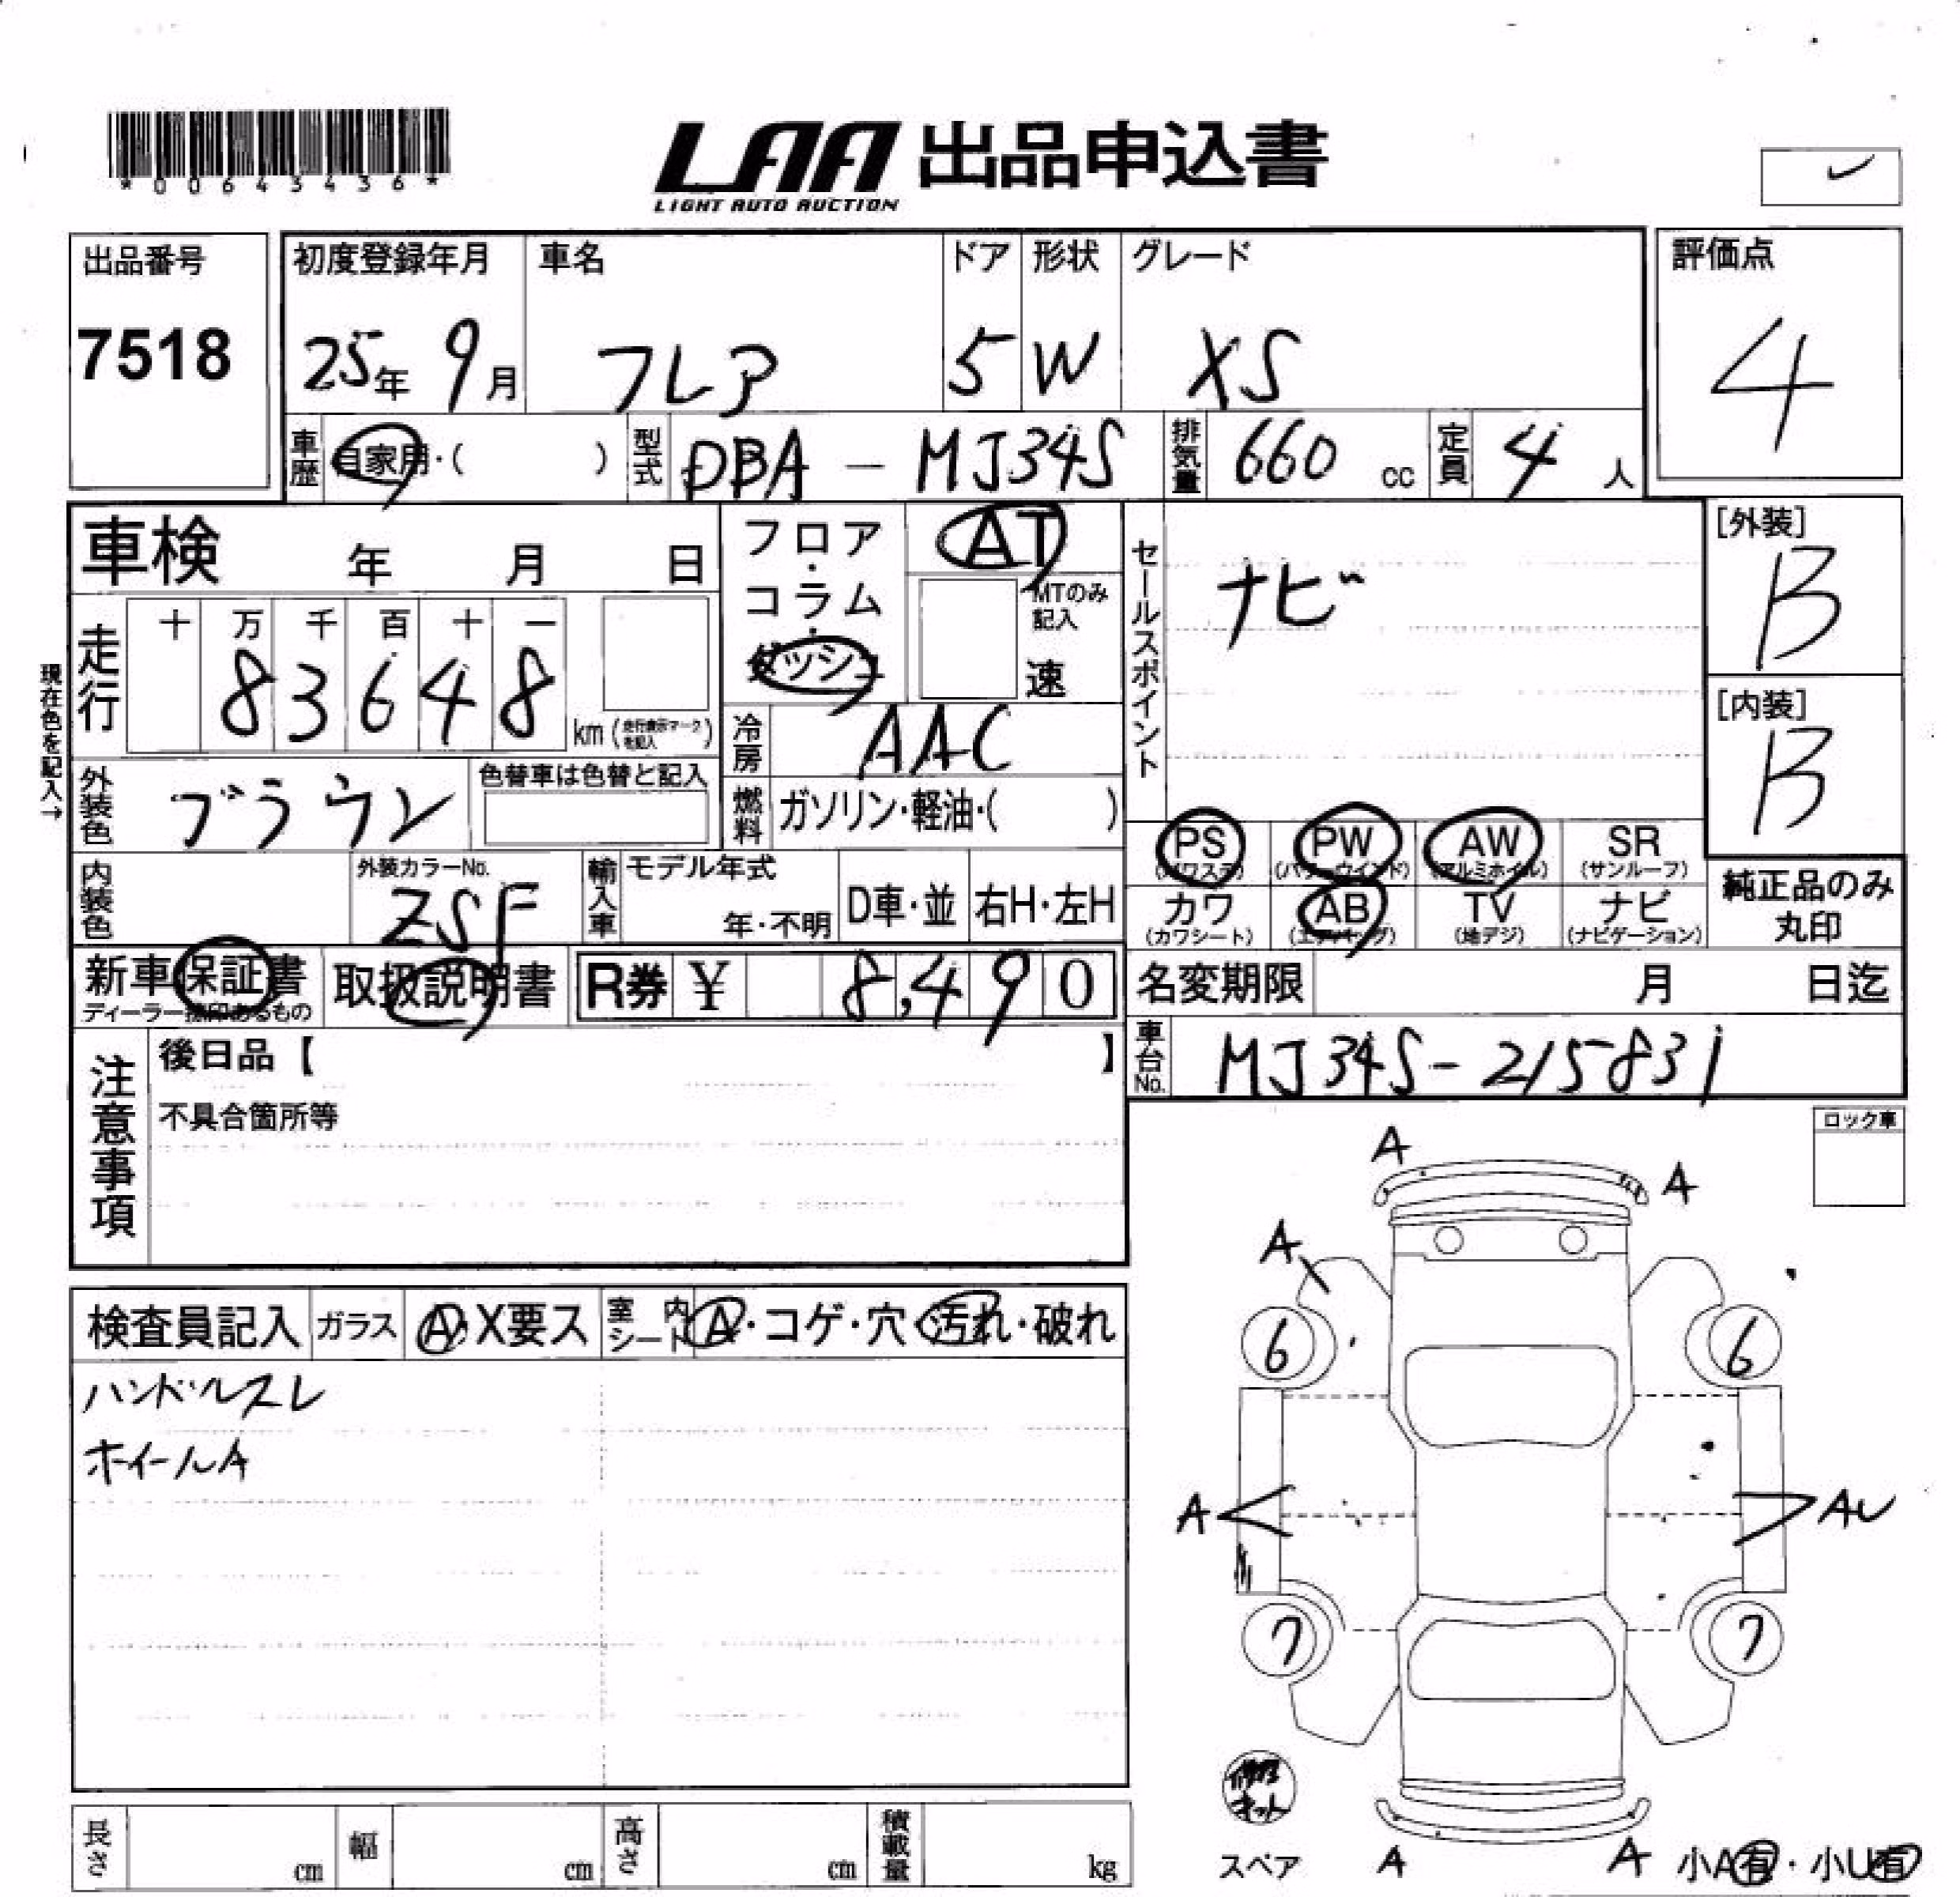 *00643436*
LAA 出品申込書
LIGHT AUTO AUCTION
出品番号
7518
初度登録年月 車名 ドア 形状 グレード
25年 9月 フレア 5 W XS
評価点
4
車歴 自家用・( ) 型式 DBA-MJ34S 排気量 660 cc 定員 4 人
車検 年 月 日
走行 十 万 千 百 十 一
83648 km (走行表示マークを記入)
現在色を記入→
外装色 ブラウン 色替車は色替と記入
内装色 外装カラーNo. ZSF
輸入車 モデル年式 年・不明 D車・並 右H・左H
フロア・コラム・ダッシュ
AT
MTのみ記入
速
冷房 AAC
燃料 ガソリン・軽油・( )
セールスポイント
ナビ
[外装]
B
[内装]
B
PS PW AW SR
(パワステ) (パワーウインド) (アルミホイル) (サンルーフ)
カワ AB TV ナビ
(カワシート) (エアバッグ) (地デジ) (ナビゲーション)
純正品のみ
丸印
新車保証書 取扱説明書 R券 ¥ 8,490
ディーラー捺印あるもの
名変期限 月 日迄
車台No. MJ34S-215831
注意事項
後日品【 】
不具合箇所等
ロック車
検査員記入 ガラス A・X要ス 室内シート A・コゲ・穴・汚れ・破れ
ハンドルスレ
ホイールA
A
A
A
6 6
A AU
7 7
修理
キット
スペア A A 小A有・小U有
長さ cm 幅 cm 高さ cm 積載量 kg